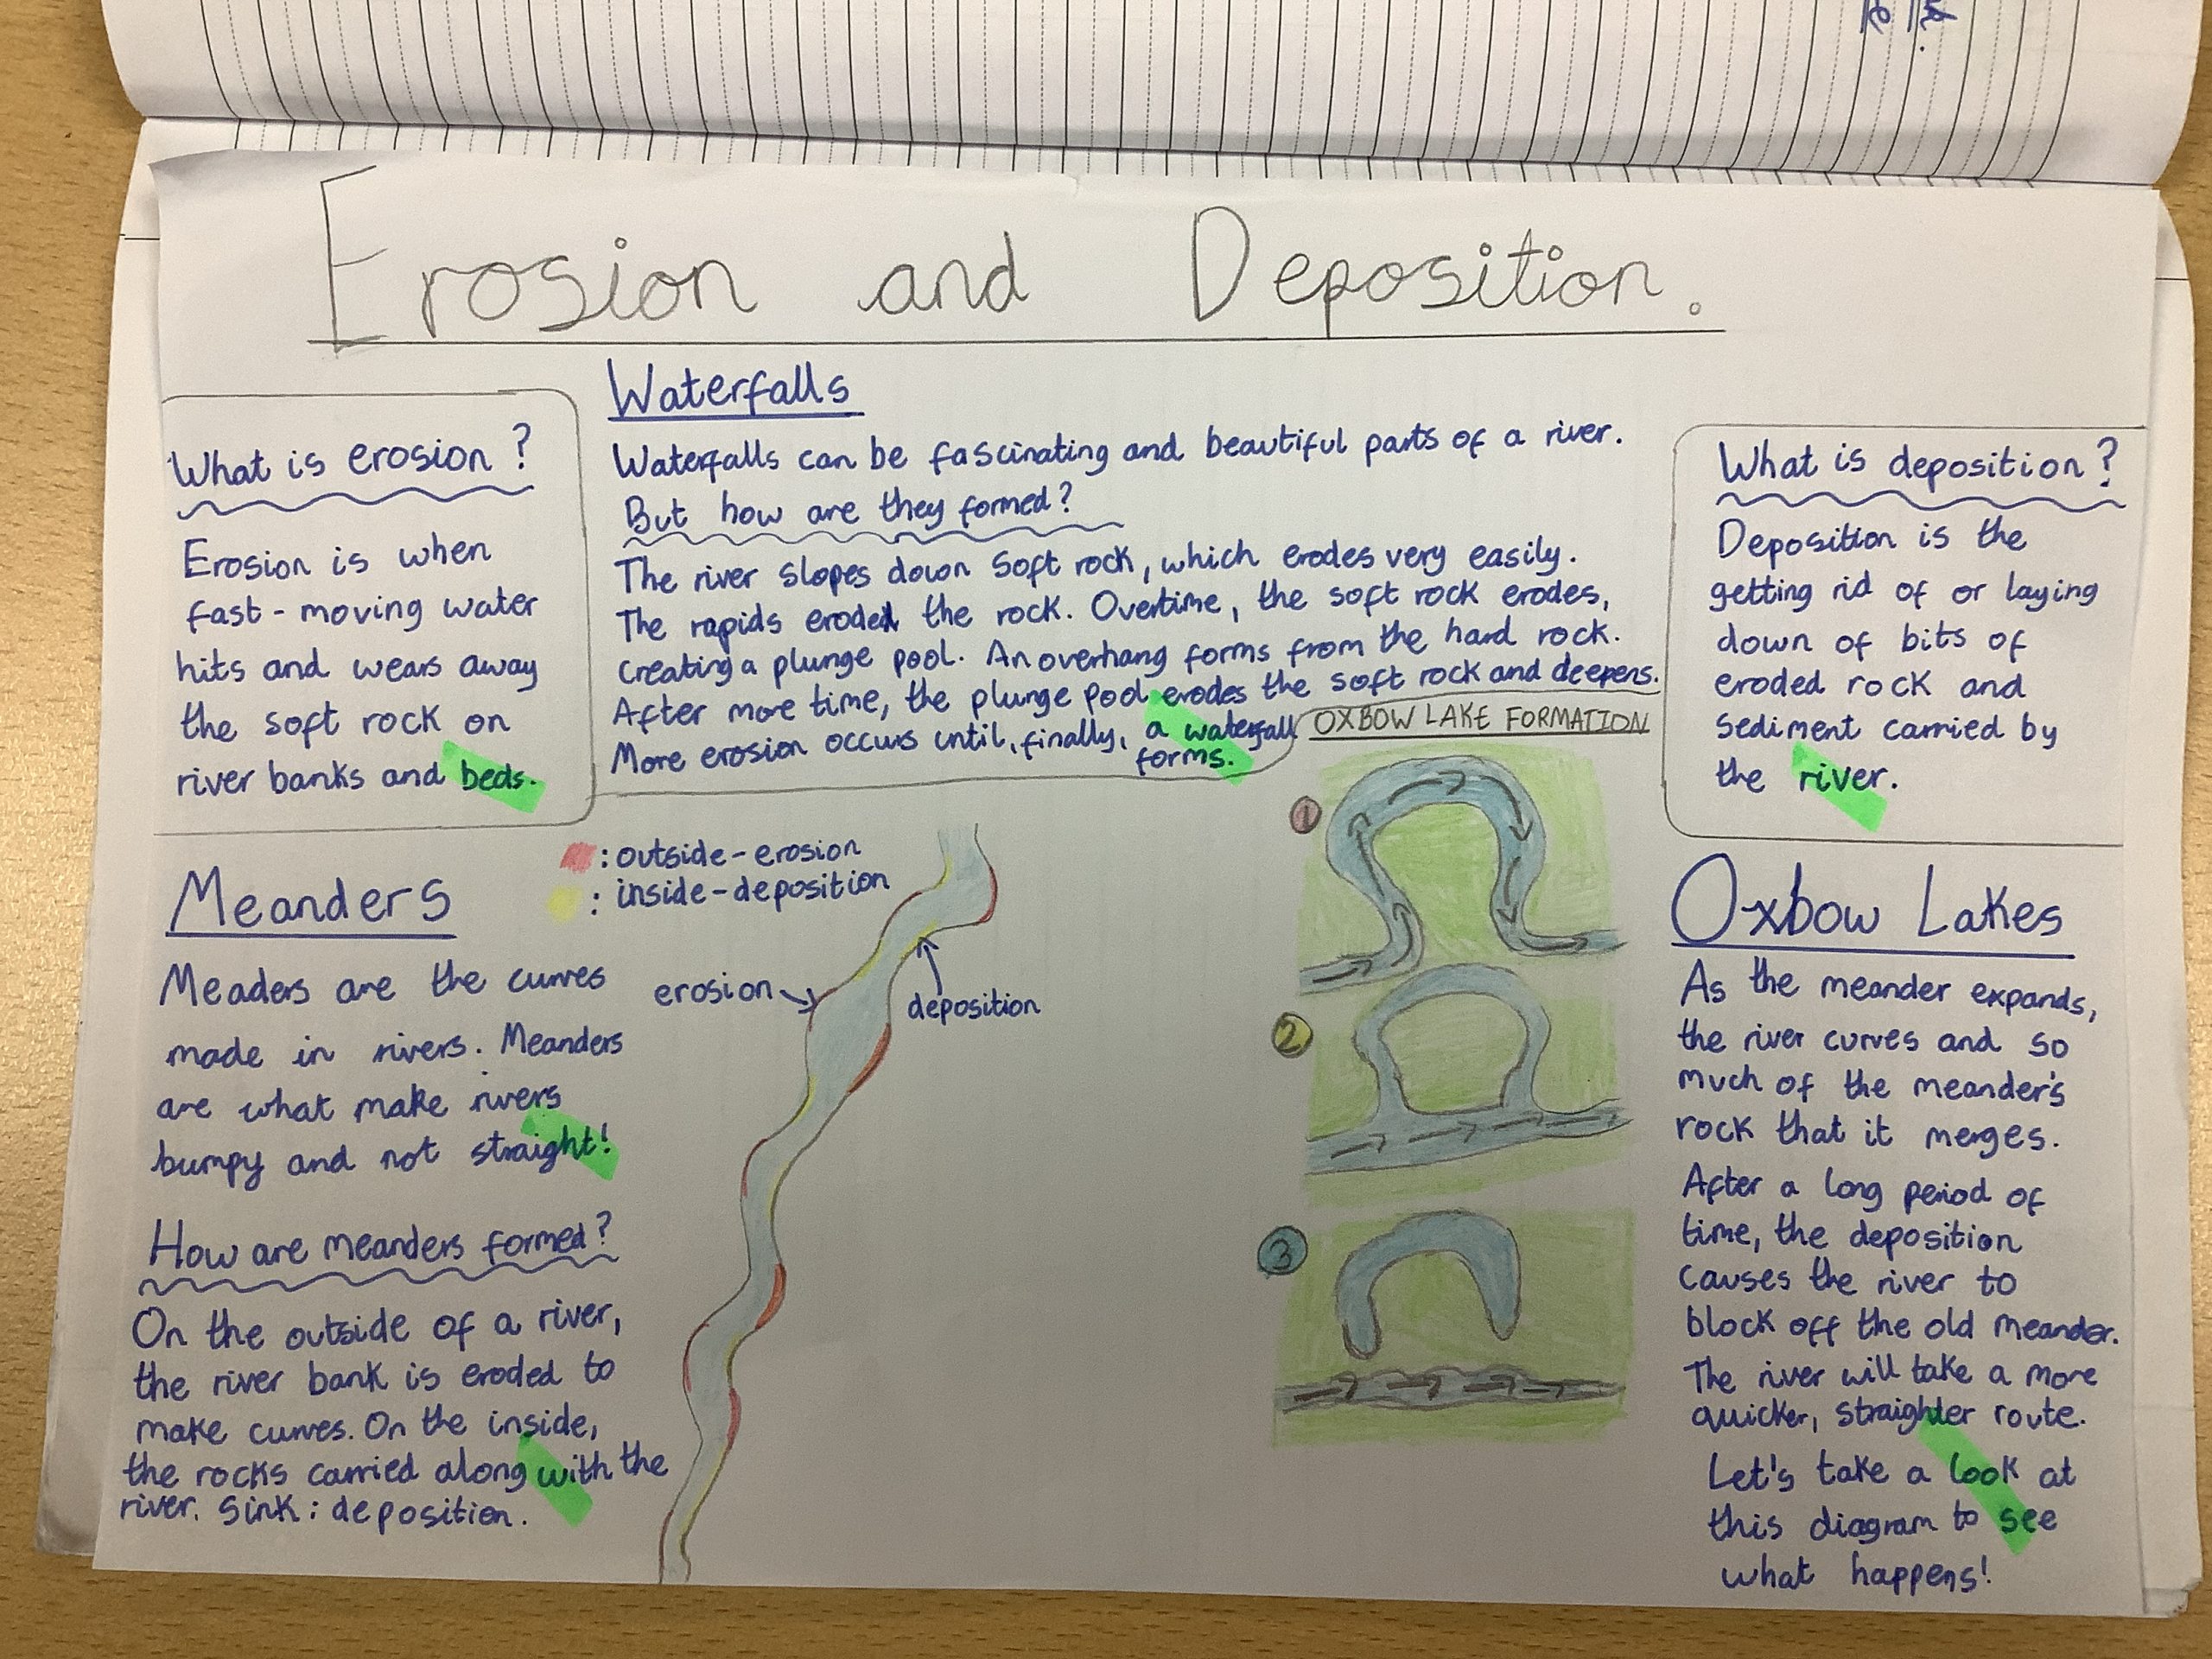 Erosion and Deposition.
What is erosion?
Erosion is when
fast-moving water
hits and wears away
the soft rock on
river banks and beds.
Waterfalls
Waterfalls can be fascinating and beautiful parts of a river.
But how are they formed?
The river slopes down soft rock, which erodes very easily.
The rapids eroded the rock. Overtime, the soft rock erodes,
creating a plunge pool. An overhang forms from the hard rock.
After more time, the plunge pool erodes the soft rock and deepens.
More erosion occurs until, finally, a waterfall
forms.
What is deposition?
Deposition is the
getting rid of or laying
down of bits of
eroded rock and
sediment carried by
the river.
Meanders
Meaders are the curves
made in rivers. Meanders
are what make rivers
bumpy and not straight!
How are meanders formed?
On the outside of a river,
the river bank is eroded to
make curves. On the inside,
the rocks carried along with the
river. sink: deposition.
: outside-erosion
: inside-deposition
erosion
deposition
OXBOW LAKE FORMATION
1
2
3
Oxbow Lakes
As the meander expands,
the river curves and so
much of the meander's
rock that it merges.
After a long period of
time, the deposition
causes the river to
block off the old meander.
The river will take a more
quicker, straighter route.
Let's take a look at
this diagram to see
what happens!